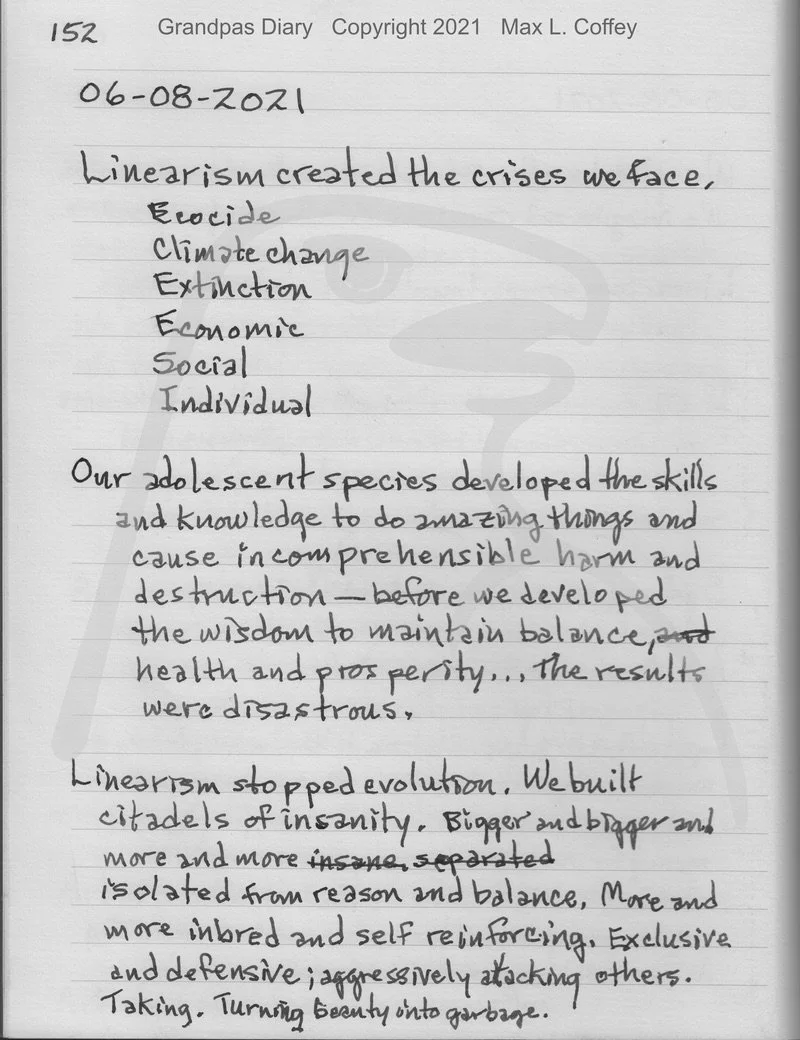 152
Grandpas Diary Copyright 2021 Max L. Coffey
06-08-2021
Linearism created the crises we face,
Ecocide
Climate change
Extinction
Economic
Social
Individual
Our adolescent species developed the skills
and knowledge to do amazing things and
cause incomprehensible harm and
destruction — before we developed
the wisdom to maintain balance, and
health and prosperity... The results
were disastrous.
Linearism stopped evolution. We built
citadels of insanity. Bigger and bigger and
more and more insane, separated
isolated from reason and balance. More and
more inbred and self reinforcing. Exclusive
and defensive; aggressively attacking others.
Taking. Turning beauty into garbage.